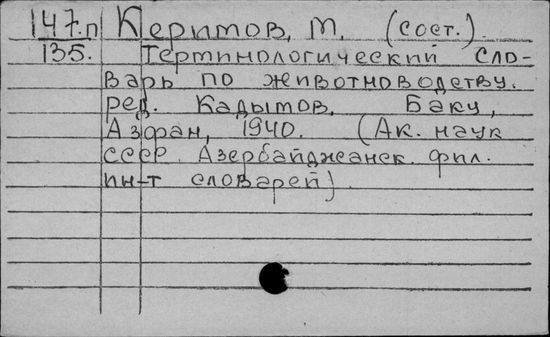 147.п Керимов, М. (сост.).
135. Терминологический сло-
варь по животноводству.
ред. Кадымов. Баку,
Азфан, 1940. (Ак. наук
СССР. Азербайджанск. фил.
ин-т словарей)